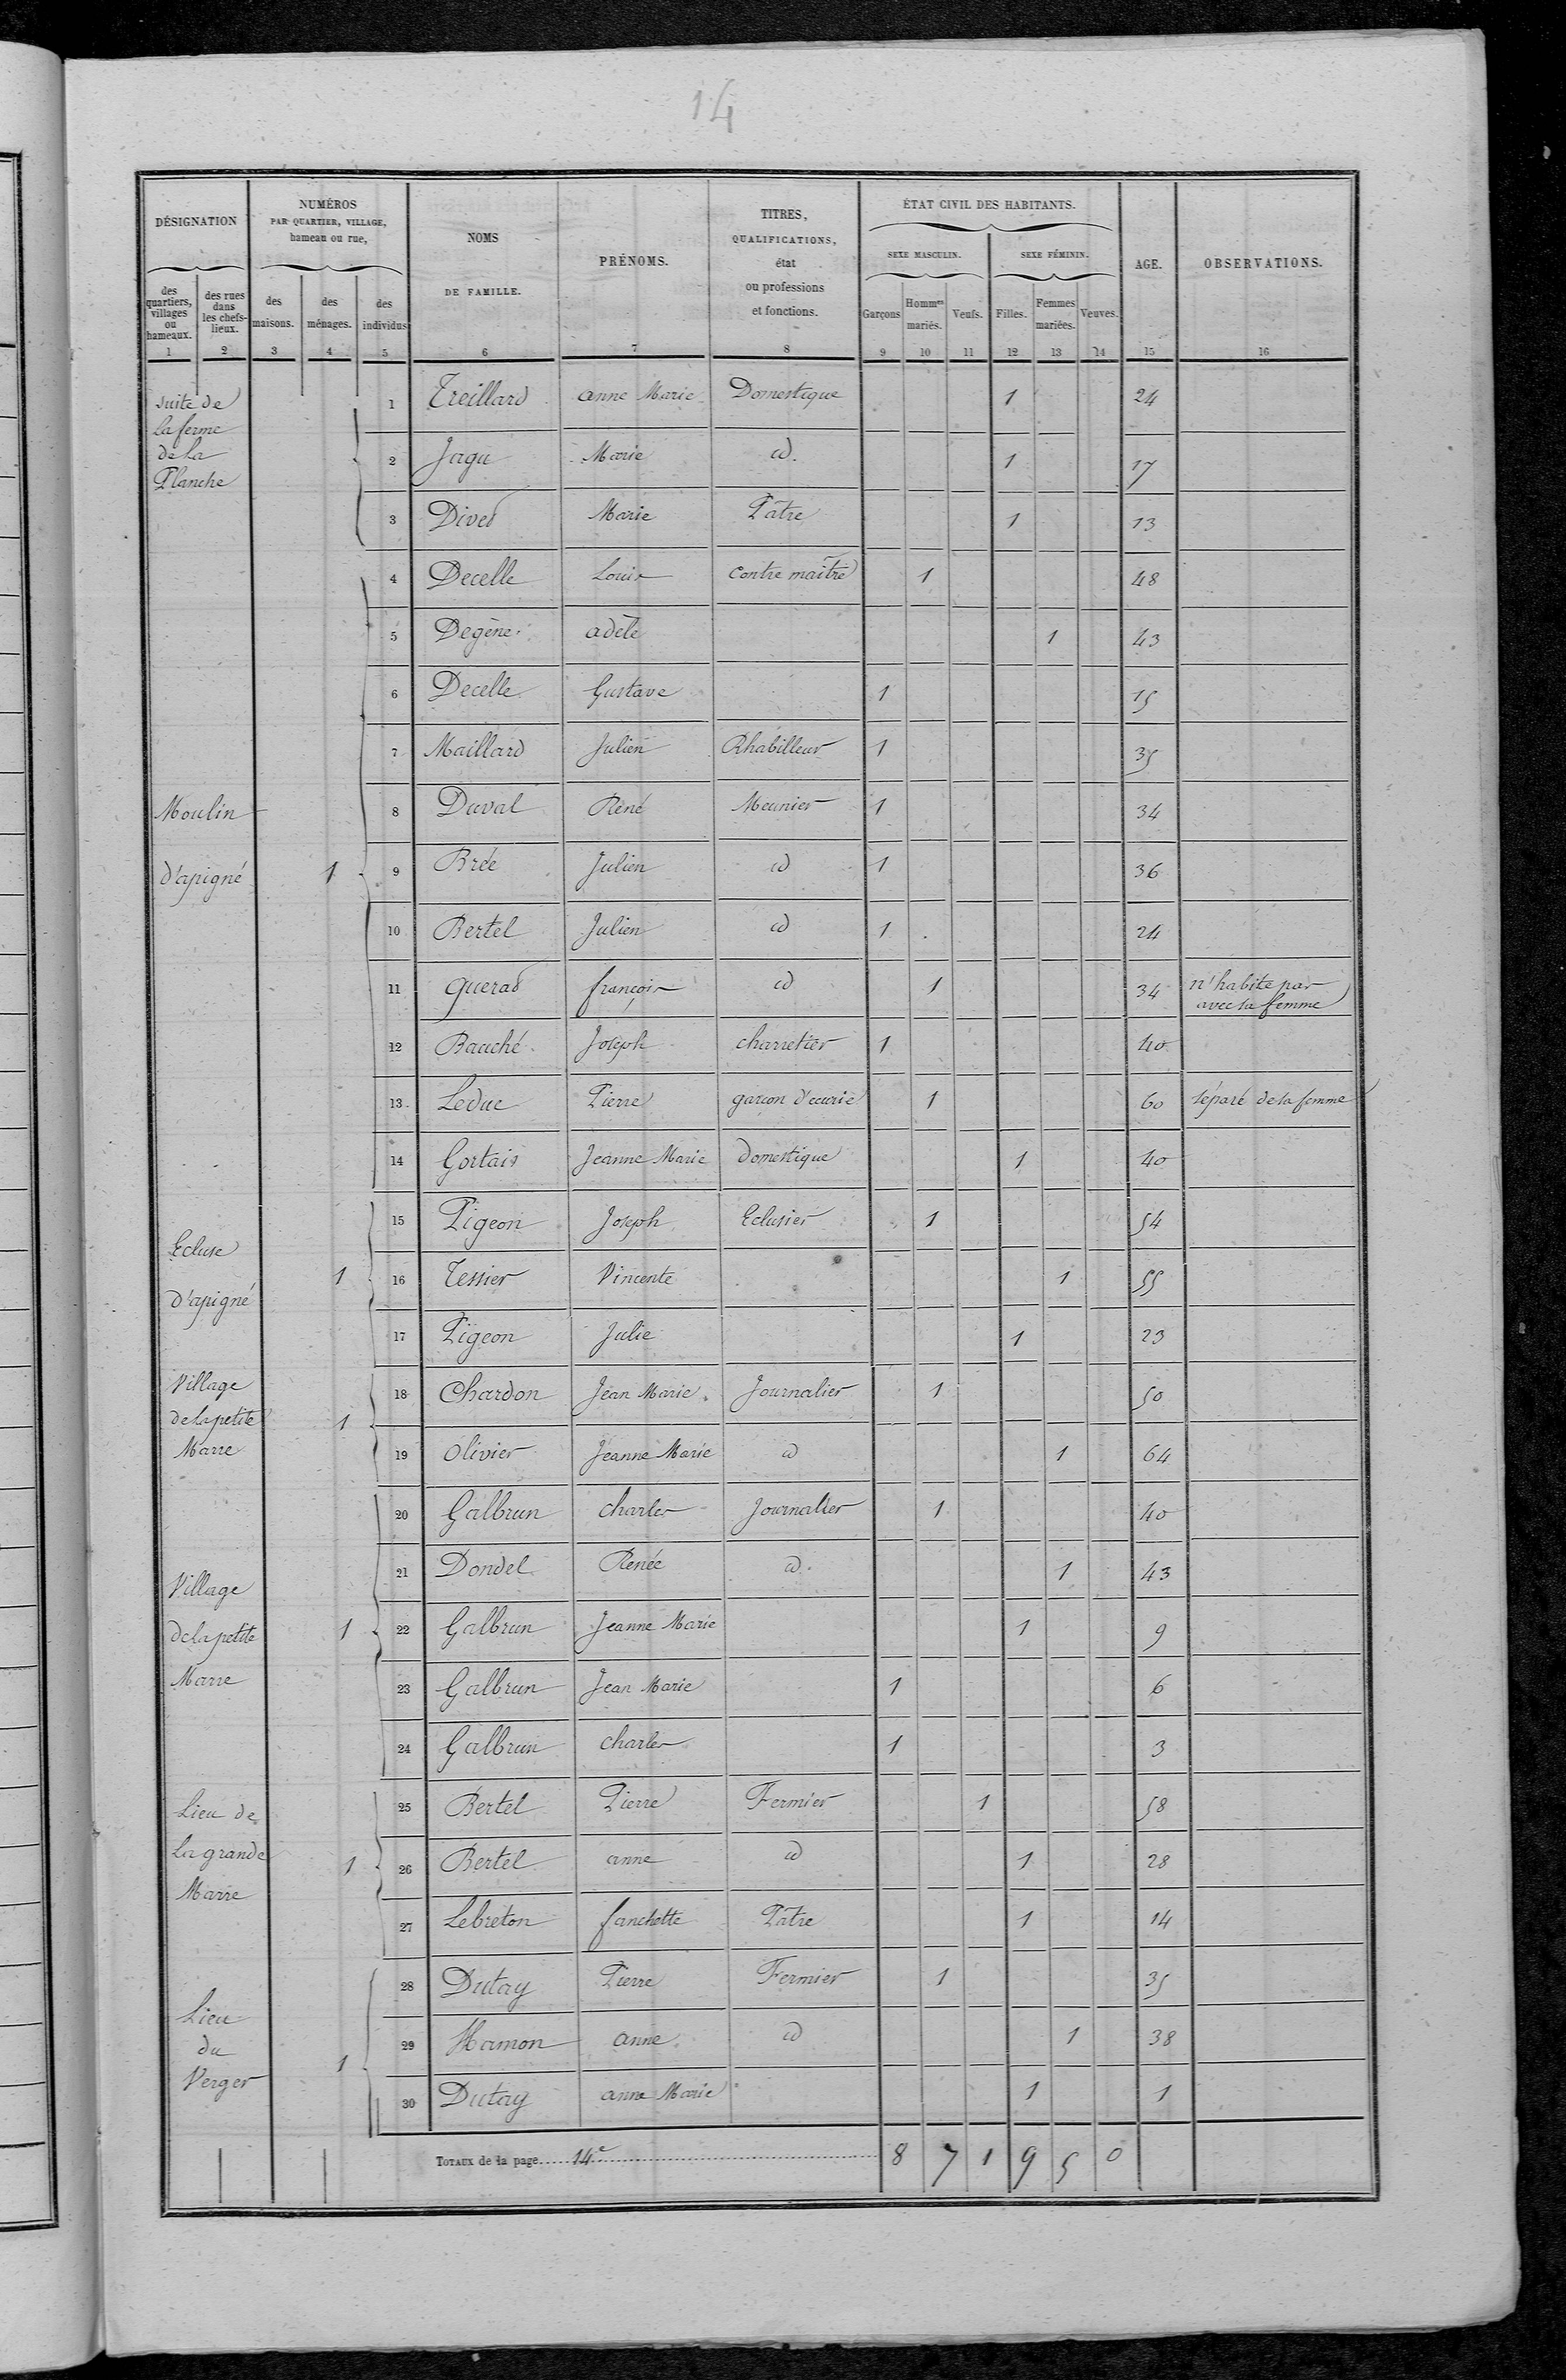 14
DÉSIGNATION
NUMÉROS
PAR QUARTIER, VILLAGE,
hameau ou rue,
NOMS
DE FAMILLE.
PRÉNOMS.
TITRES,
QUALIFICATIONS,
état
ou professions
et fonctions.
ÉTAT CIVIL DES HABITANTS.
SEXE MASCULIN. SEXE FÉMININ.
AGE.
OBSERVATIONS.
des
quartiers,
villages
ou
hameaux.
des rues
dans
les chefs-
lieux.
des
maisons.
des
ménages.
des
individus
Garçons
Hommes
mariés.
Veufs.
Filles.
Femmes
mariées.
Veuves.
1 2 3 4 5 6 7 8 9 10 11 12 13 14 15 16
suite de
la ferme
de la
Planche
1 Treillard anne Marie Domestique 1 24
2 Jagu Marie id. 1 17
3 Dived Marie Pâtre 1 13
Moulin
d'apigné
1
4 Decelle Louis Contre maître 1 48
5 Degène adèle 1 43
6 Decelle Gustave 1 15
7 Maillard Julien Rhabilleur 1 35
8 Duval René Meunier 1 34
9 Brée Julien id 1 36
10 Bertel Julien id 1 24
11 querad françois id 1 34 n'habite pas
avec sa femme
12 Bauché Joseph charretier 1 40
13 Leduc Pierre garçon d'écurie 1 60 séparé de sa femme
14 Gortais Jeanne Marie domestique 1 40
Ecluse
d'apigné
1
15 Pigeon Joseph Eclusier 1 54
16 Tessier Vincente 1 55
17 Pigeon Julie 1 23
Village
de la petite
Marre
1
18 Chardon Jean Marie Journalier 1 50
19 Olivier Jeanne Marie id 1 64
Village
de la petite
Marre
1
20 Galbrun charles Journalier 1 40
21 Dondel Renée id. 1 43
22 Galbrun Jeanne Marie 1 9
23 Galbrun Jean Marie 1 6
24 Galbrun charles 1 3
Lieu de
la grande
Marre
1
25 Bertel Pierre Fermier 1 58
26 Bertel anne id 1 28
27 Lebreton fanchette Pâtre 1 14
Lieu
du
Verger
1
28 Dutay Pierre Fermier 1 35
29 Hamon anne id 1 38
30 Dutay anne Marie 1 1
TOTAUX de la page 14e 8 7 1 9 5 0